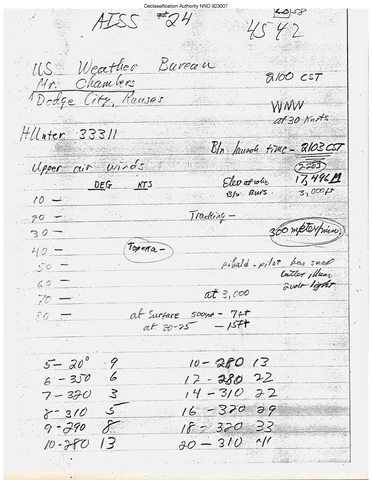 Declassification Authority NND 923007
AISS #24
4542
US Weather Bureau
Mr. Chambers
Dodge City, Kansas
2100 CST
WNW
at 30 Knts
HUnter 33311
Bln launch time - 2103 CST
Upper air winds
DEG KTS
17,496 M
Bln Burs. 3,000 ft
10 -
20 -
Tracking -
30 -
360 meter/min
40 -
Topeka -
50 -
pibald - pilot
60 -
70 -
at 3,000
80 -
at Surface 500 - 7ft
at 20-25 - 15ft
5 - 20° 9
10 - 280 13
6 - 350 6
12 - 280 22
7 - 320 3
14 - 310 22
8 - 310 5
16 - 320 29
9 - 290 8
18 - 320 33
10 - 280 13
20 - 310